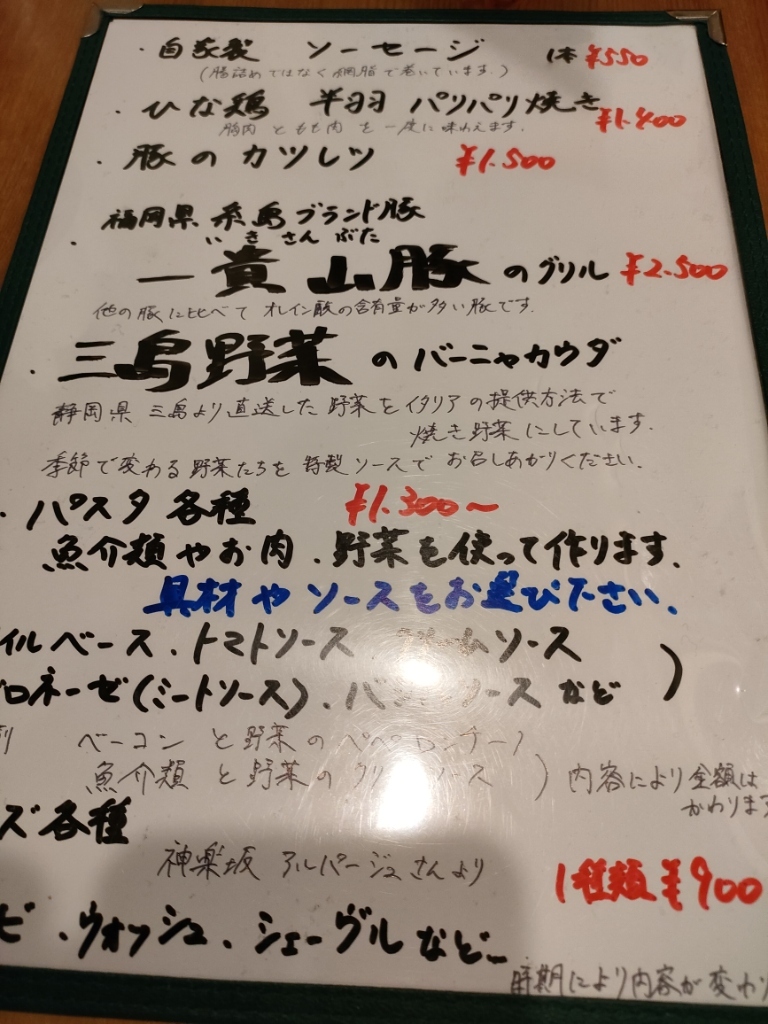 ・自家製 ソーセージ 1本 ¥550
(腸詰めではなく網脂で巻いています。)
・ひな鶏 半羽 パリパリ焼き ¥1.400
胸肉ともも肉を一度に味わえます.
・豚のカツレツ ¥1.500
福岡県 糸島ブランド豚
いきさんぶた
・一貴山豚のグリル ¥2.500
他の豚に比べてオレイン酸の含有量が多い豚です.
・三島野菜のバーニャカウダ
静岡県 三島より直送した野菜をイタリアの提供方法で
焼き野菜にしています.
季節で変わる野菜たちを特製ソースでお召しあがりください.
・パスタ各種 ¥1.300〜
魚介類やお肉、野菜を使って作ります.
具材やソースをお選び下さい.
イルベース、トマトソース ームソース
ロネーゼ(ミートソース)、バ ソースなど)
ベーコンと野菜のペペロンチーノ
魚介類と野菜のクリ ソース)内容により金額は
かわります
ズ各種
神楽坂 アルパージュさんより
1種類¥900
ビ、ウォッシュ、シェーヴルなど…
時期により内容が変わり